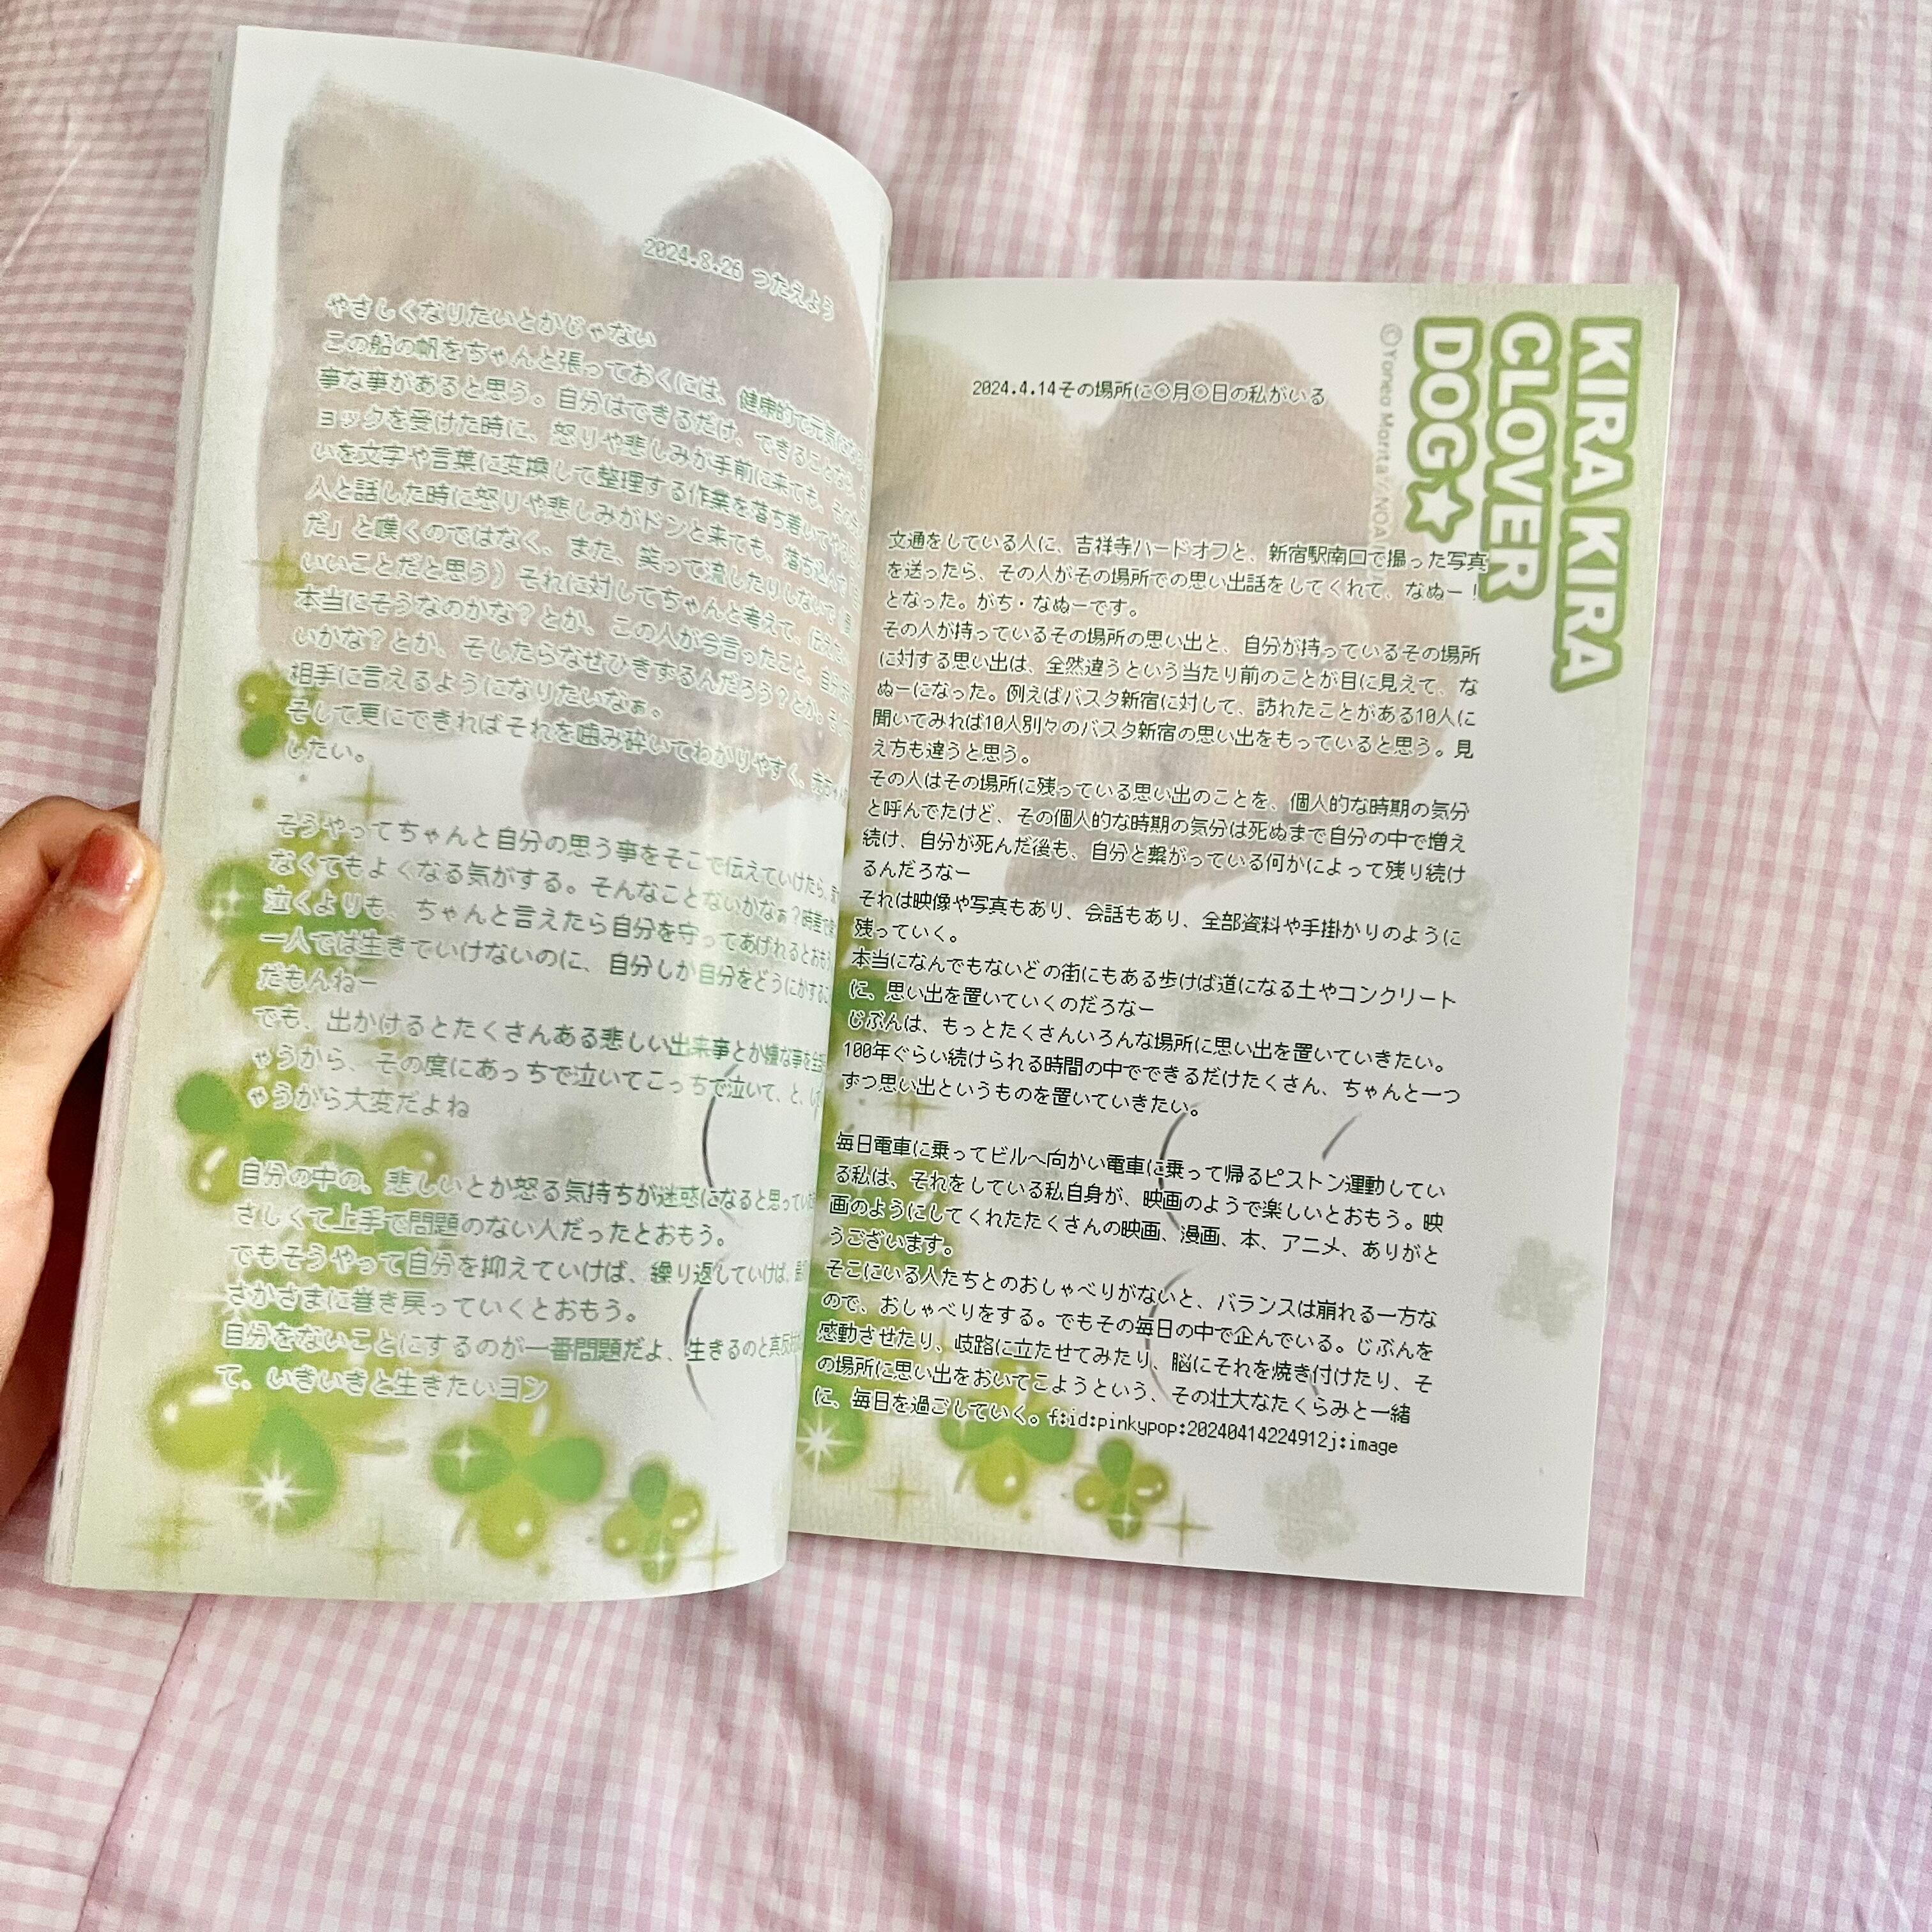 2024.8.26 つたえよう
やさしくなりたいとかじゃない
この船の帆をちゃんと張っておくには、健康的で元気
事な事があると思う。自分はできるだけ、できることなら、
ョックを受けた時に、怒りや悲しみが手前に来ても、その
いを文字や言葉に変換して整理する作業を落ち着いてやる
人と話した時に怒りや悲しみがドンと来ても、落ち込んで
だ」と嘆くのではなく、また、笑って流したりしないで
いいことだと思う）それに対してちゃんと考えて、伝えたい
本当にそうなのかな？とか、この人が今言ったこと、自分
いかな？とか、そしたらなぜひきずるんだろう？とか。そ
相手に言えるようになりたいなぁ。
そして更にできればそれを噛み砕いてわかりやすく、
したい。
そうやってちゃんと自分の思う事をそこで伝えていけたら、
なくてもよくなる気がする。そんなことないかなぁ？時差で
泣くよりも、ちゃんと言えたら自分を守ってあげれるとおもう
一人では生きていけないのに、自分しか自分をどうにかする
だもんねー
でも、出かけるとたくさんある悲しい出来事とか嫌な事を
ゃうから、その度にあっちで泣いてこっちで泣いて、と、
ゃうがら大変だよね
自分の中の、悲しいとか怒る気持ちが迷惑になると思ってい
さしくて上手で問題のない人だったとおもう。
でもそうやって自分を抑えていけば、繰り返していけば、
さかさまに巻き戻っていくとおもう。
自分をないことにするのが一番問題だよ、生きるのと真反
て、いきいきと生きたいヨン
KIRA KIRA
CLOVER
DOG☆
©Yoneo Morita/NOA
2024.4.14その場所に◎月◎日の私がいる
文通をしている人に、吉祥寺ハードオフと、新宿駅南口で撮った写真
を送ったら、その人がその場所での思い出話をしてくれて、なぬー！
となった。がち・なぬーです。
その人が持っているその場所の思い出と、自分が持っているその場所
に対する思い出は、全然違うという当たり前のことが目に見えて、な
ぬーになった。例えばバスタ新宿に対して、訪れたことがある10人に
聞いてみれば10人別々のバスタ新宿の思い出をもっていると思う。見
え方も違うと思う。
その人はその場所に残っている思い出のことを、個人的な時期の気分
と呼んでたけど、その個人的な時期の気分は死ぬまで自分の中で増え
続け、自分が死んだ後も、自分と繋がっている何かによって残り続け
るんだろなー
それは映像や写真もあり、会話もあり、全部資料や手掛かりのように
残っていく。
本当になんでもないどの街にもある歩けば道になる土やコンクリート
に、思い出を置いていくのだろなー
じぶんは、もっとたくさんいろんな場所に思い出を置いていきたい。
100年ぐらい続けられる時間の中でできるだけたくさん、ちゃんと一つ
ずつ思い出というものを置いていきたい。
毎日電車に乗ってビルへ向かい電車に乗って帰るピストン運動してい
る私は、それをしている私自身が、映画のようで楽しいとおもう。映
画のようにしてくれたたくさんの映画、漫画、本、アニメ、ありがと
うございます。
そこにいる人たちとのおしゃべりがないと、バランスは崩れる一方な
ので、おしゃべりをする。でもその毎日の中で企んでいる。じぶんを
感動させたり、岐路に立たせてみたり、脳にそれを焼き付けたり、そ
の場所に思い出をおいてこようという、その壮大なたくらみと一緒
に、毎日を過ごしていく。f:id:pinkypop:20240414224912j:image